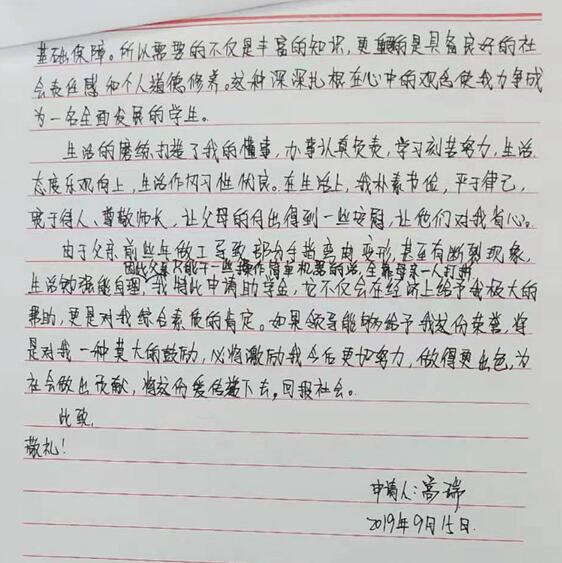 基础保障。所以需要的不仅是丰富的知识，更重要的是具备良好的社
会责任感和个人道德修养。这种深深扎根在心中的观念使我力争成
为一名全面发展的学生。
生活的磨练打造了我的懂事，办事认真负责，学习刻苦努力，生活
态度乐观向上，生活作风习性优良。在生活上，我朴素节俭，平于律己，
宽于待人、尊敬师长，让父母的付出得到一些安慰，让他们对我省心。
由于父亲前些年做工导致部分手指弯曲变形，甚至有断裂现象，
因此父亲只能干一些操作简单机器的活，全靠母亲一人打拼
生活勉强能自理，我特此申请助学金，它不仅会在经济上给予我极大的
帮助，更是对我综合素质的肯定。如果领导能够给予我这份荣誉，将
是对我一种莫大的鼓励，必将激励我今后更加努力，做得更出色，为
社会做出贡献，将这份爱传递下去，回报社会。
此致，
敬礼！
申请人：高瑞
2019年9月15日